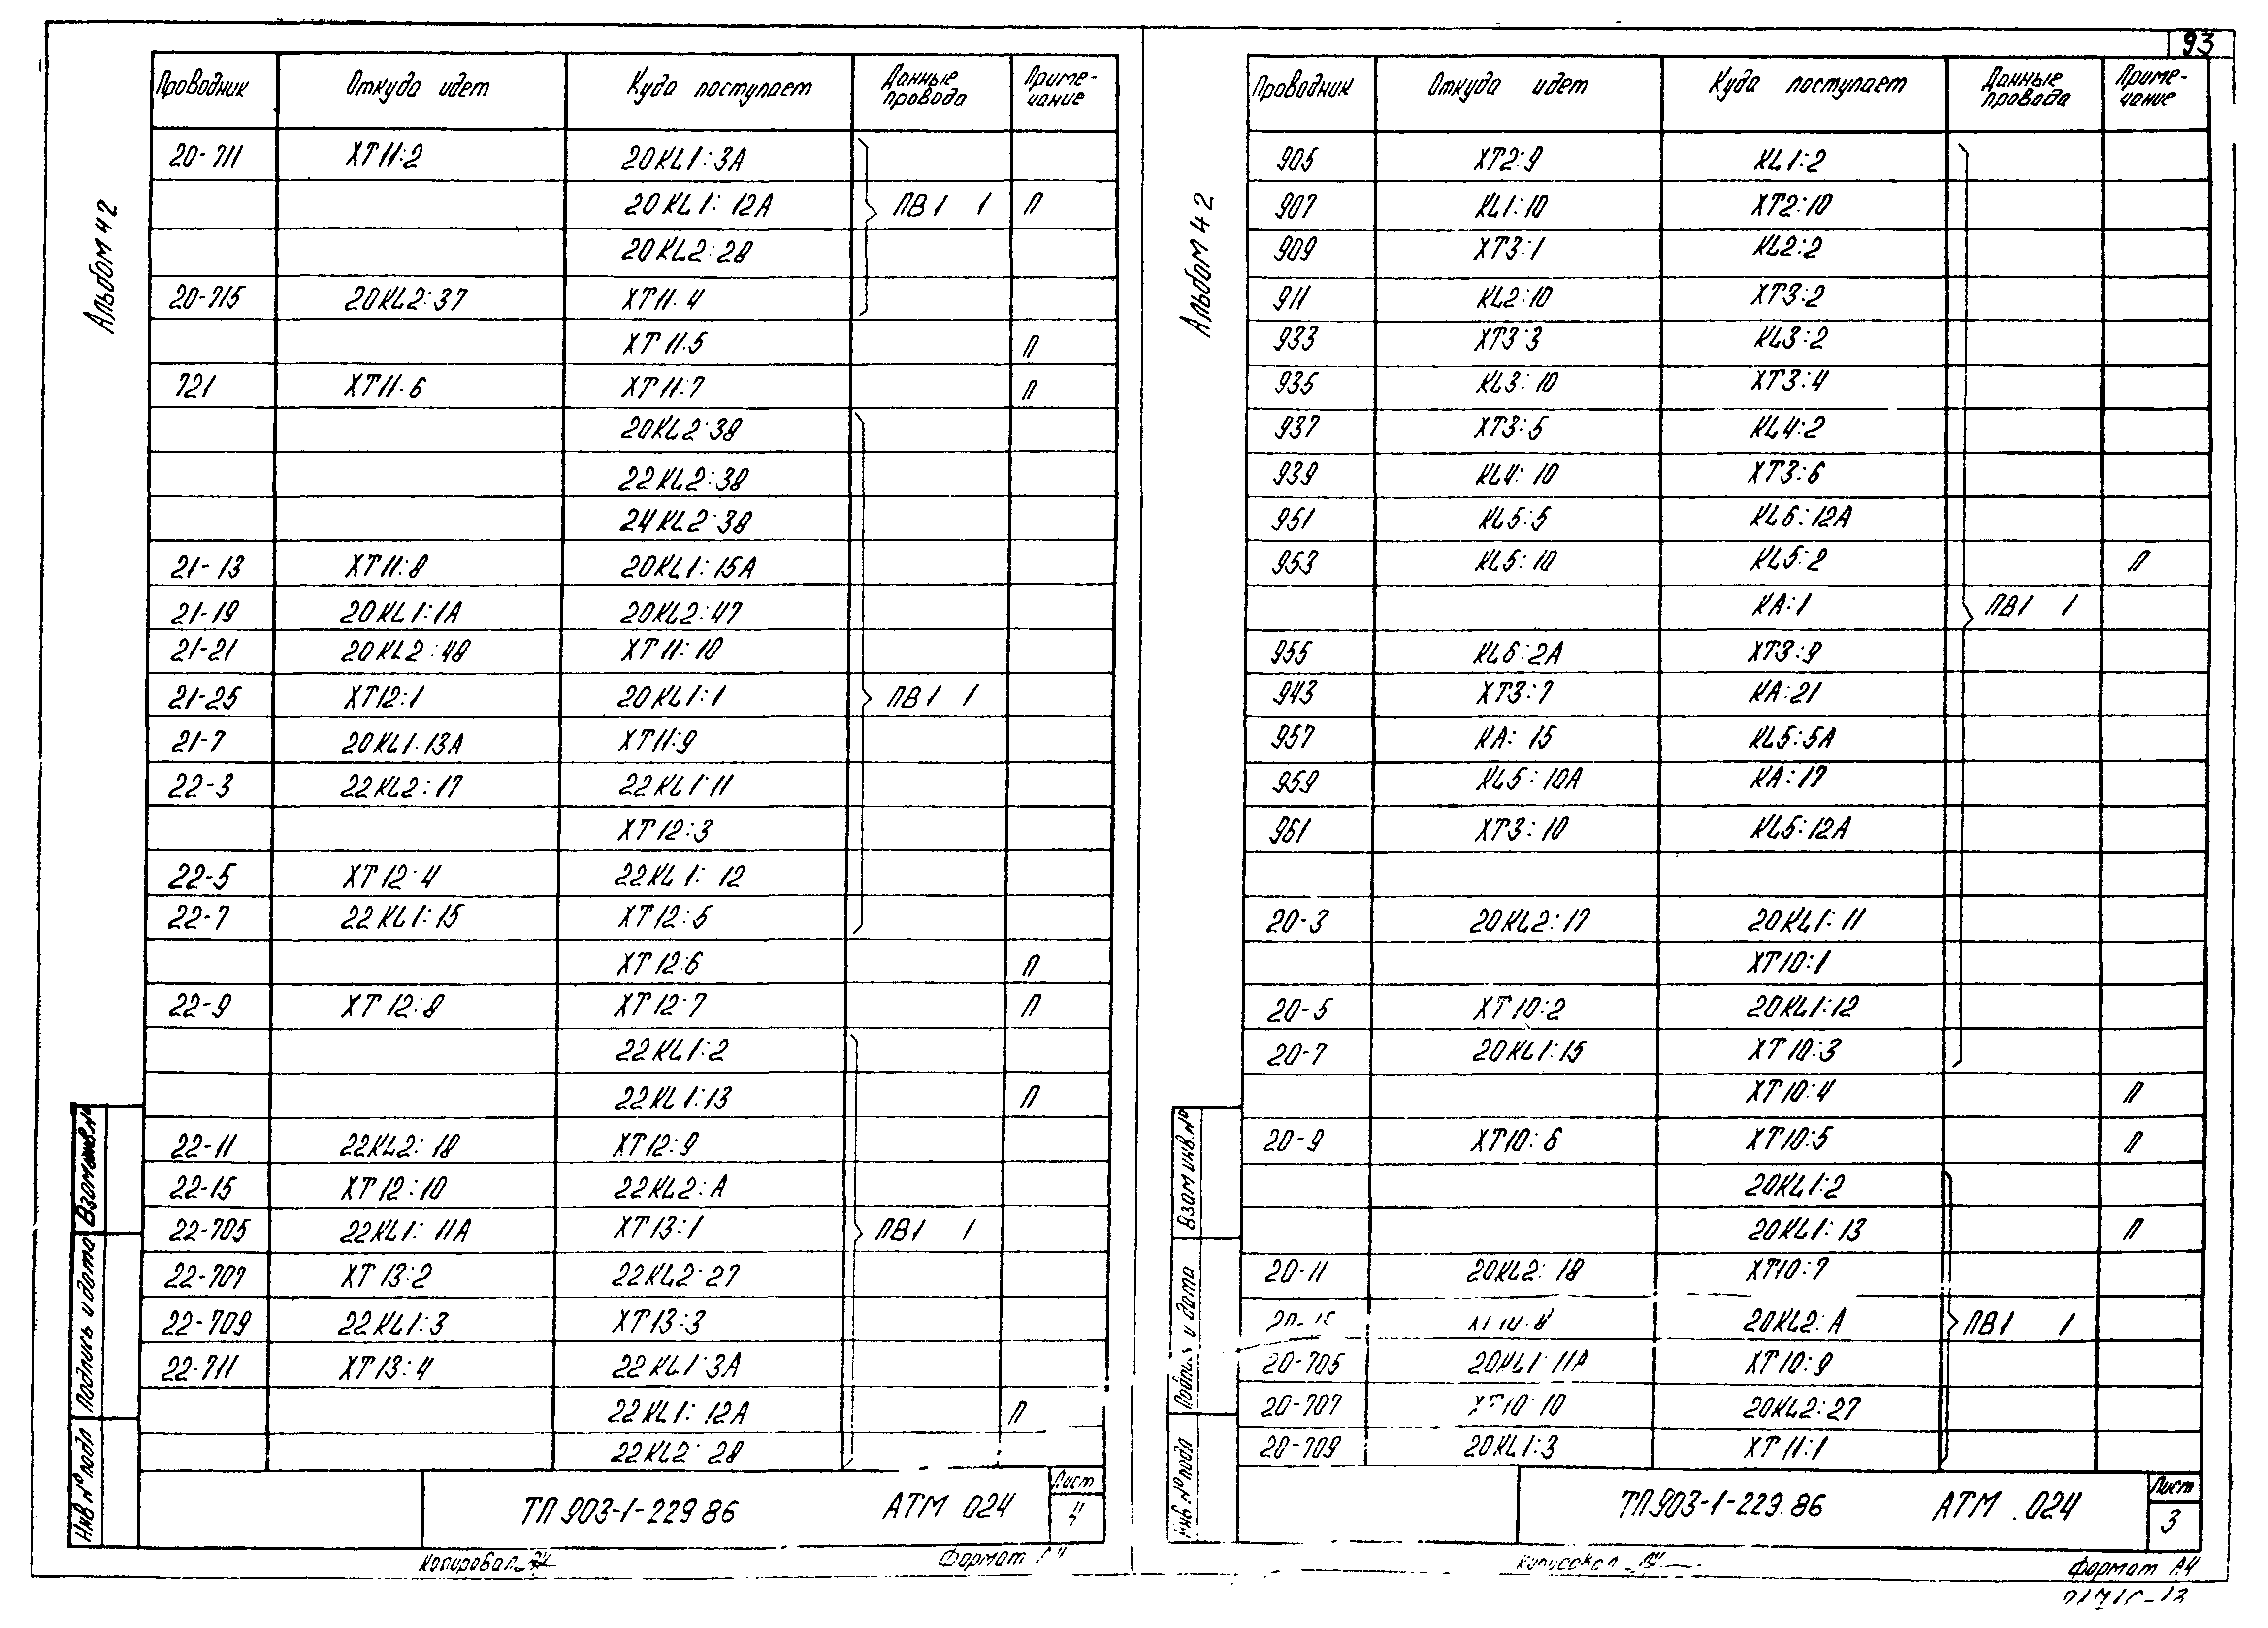 93
Альбом 4 2
Проводник Откуда идет Куда поступает Данные провода Примечание
20-711 XT11:2 20KL1:3A
20KL1:12A ПВ1 1 П
20KL2:28
20-715 20KL2:37 XT11.4
XT11.5 П
721 XT11.6 XT11:7 П
20KL2:38
22KL2:38
24KL2:38
21-13 XT11:8 20KL1:15A
21-19 20KL1:1A 20KL2:47
21-21 20KL2:48 XT11:10
21-25 XT12:1 20KL1:1 ПВ1 1
21-7 20KL1.13A XT11:9
22-3 22KL2:17 22KL1:11
XT12:3
22-5 XT12:4 22KL1:12
22-7 22KL1:15 XT12:5
XT12:6 П
22-9 XT12:8 XT12:7 П
22KL1:2
22KL1:13 П
22-11 22KL2:18 XT12:9
22-15 XT12:10 22KL2:A
22-705 22KL1:11A XT13:1 ПВ1 1
22-707 XT13:2 22KL2:27
22-709 22KL1:3 XT13:3
22-711 XT13:4 22KL1:3A
22KL1:12A П
22KL2:28
Инв № подл Подпись и дата Взам инв. №
ТП 903-1-229 86 АТМ 024 Лист 4
Копировал Формат
Альбом 4 2
Проводник Откуда идет Куда поступает Данные провода Примечание
905 XT2:9 KL1:2
907 KL1:10 XT2:10
909 XT3:1 KL2:2
911 KL2:10 XT3:2
933 XT3:3 KL3:2
935 KL3:10 XT3:4
937 XT3:5 KL4:2
939 KL4:10 XT3:6
951 KL5:5 KL6:12A
953 KL5:10 KL5:2 П
KA:1 ПВ1 1
955 KL6:2A XT3:9
943 XT3:7 KA:21
957 KA:15 KL5:5A
959 KL5:10A KA:17
961 XT3:10 KL5:12A
20-3 20KL2:17 20KL1:11
XT10:1
20-5 XT10:2 20KL1:12
20-7 20KL1:15 XT10:3
XT10:4 П
20-9 XT10:6 XT10:5 П
20KL1:2
20KL1:13 П
20-11 20KL2:18 XT10:7
20KL2:A ПВ1 1
20-705 20KL1:11A XT10:9
20-707 XT10:10 20KL2:27
20-709 20KL1:3 XT11:1
Инв. № подл Подпись и дата Взам инв. №
ТП 903-1-229.86 АТМ .024 Лист 3
Копировал Формат А4